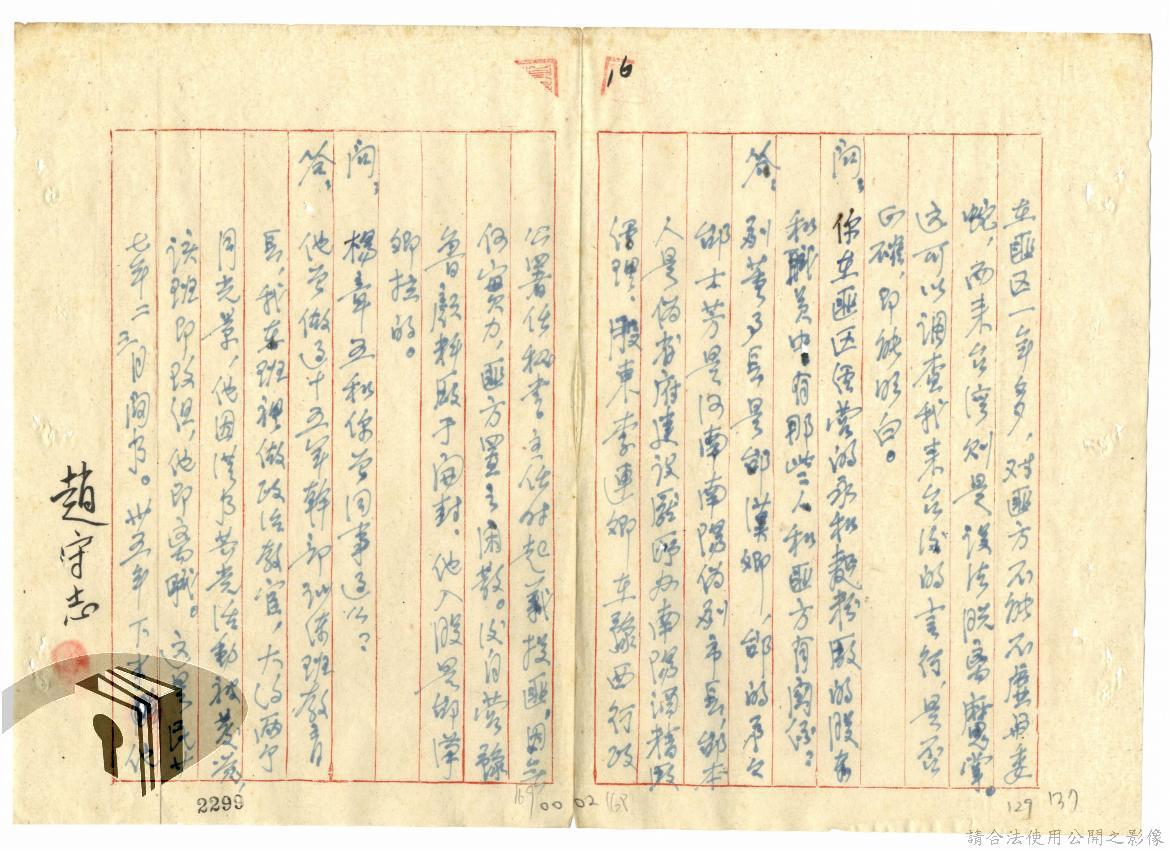 16
在匪区一年多,对匪方不能不虚与委
蛇,而来台湾则是设法脱离魔掌。
这可以调查我来台后的言行,是否
正確,即能明白。
问:你在匪区経营的永和麵粉厰的股东
和職员中有那些人和匪方有関係?
答:副董事長是邰漢卿,邰的弟弟
邰士芳是河南南陽伪副市長,邰本
人是伪省府建设廳所办南陽酒精厰
経理、股東李連卿在豫西行政
公署任秘書主任时起義投匪,因無
何实力,匪方置之闲散。後自営豫
魯顏料厰于開封,他入股是邰漢
卿拉的。
问:楊章五和你曾同事过么?
答:他曾做过十五軍幹部训练班教育
長,我在班裡做政治教官,大約两个
月光景,他因洪乃共党活動被发觉,
该班即改组,他即离職。这是民廿
七年二三月间事。卅五年下 他
趙守志
2299
169
00 02
168
129
137
請合法使用公開之影像